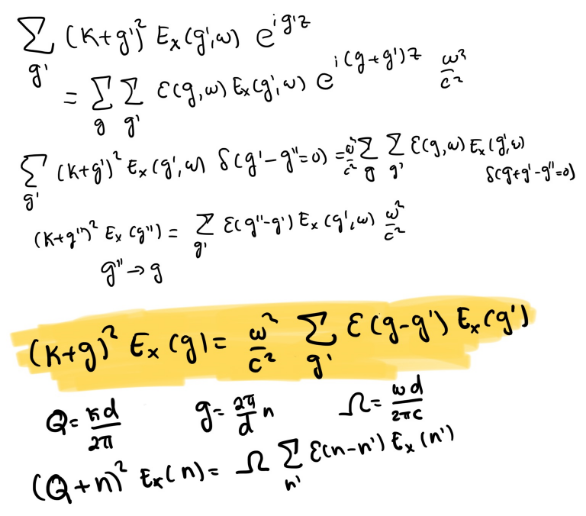 ∑_{g'} (K+g')² Eₓ(g',ω) e^{ig'z}
= ∑_g ∑_{g'} ε(g,ω) Eₓ(g',ω) e^{i(g+g')z} ω²/c²
∑_{g'} (K+g')² Eₓ(g',ω) δ(g'-g''=0) = ω²/c² ∑_g ∑_{g'} ε(g,ω) Eₓ(g',ω) δ(g+g'-g''=0)
(K+g'')² Eₓ(g'') = ∑_{g'} ε(g''-g') Eₓ(g',ω) ω²/c²
g'' → g
(K+g)² Eₓ(g) = ω²/c² ∑_{g'} ε(g-g') Eₓ(g')
Q = Kd/2π g = 2π/d n Ω = ωd/2πc
(Q+n)² Eₓ(n) = Ω ∑_{n'} ε(n-n') Eₓ(n')